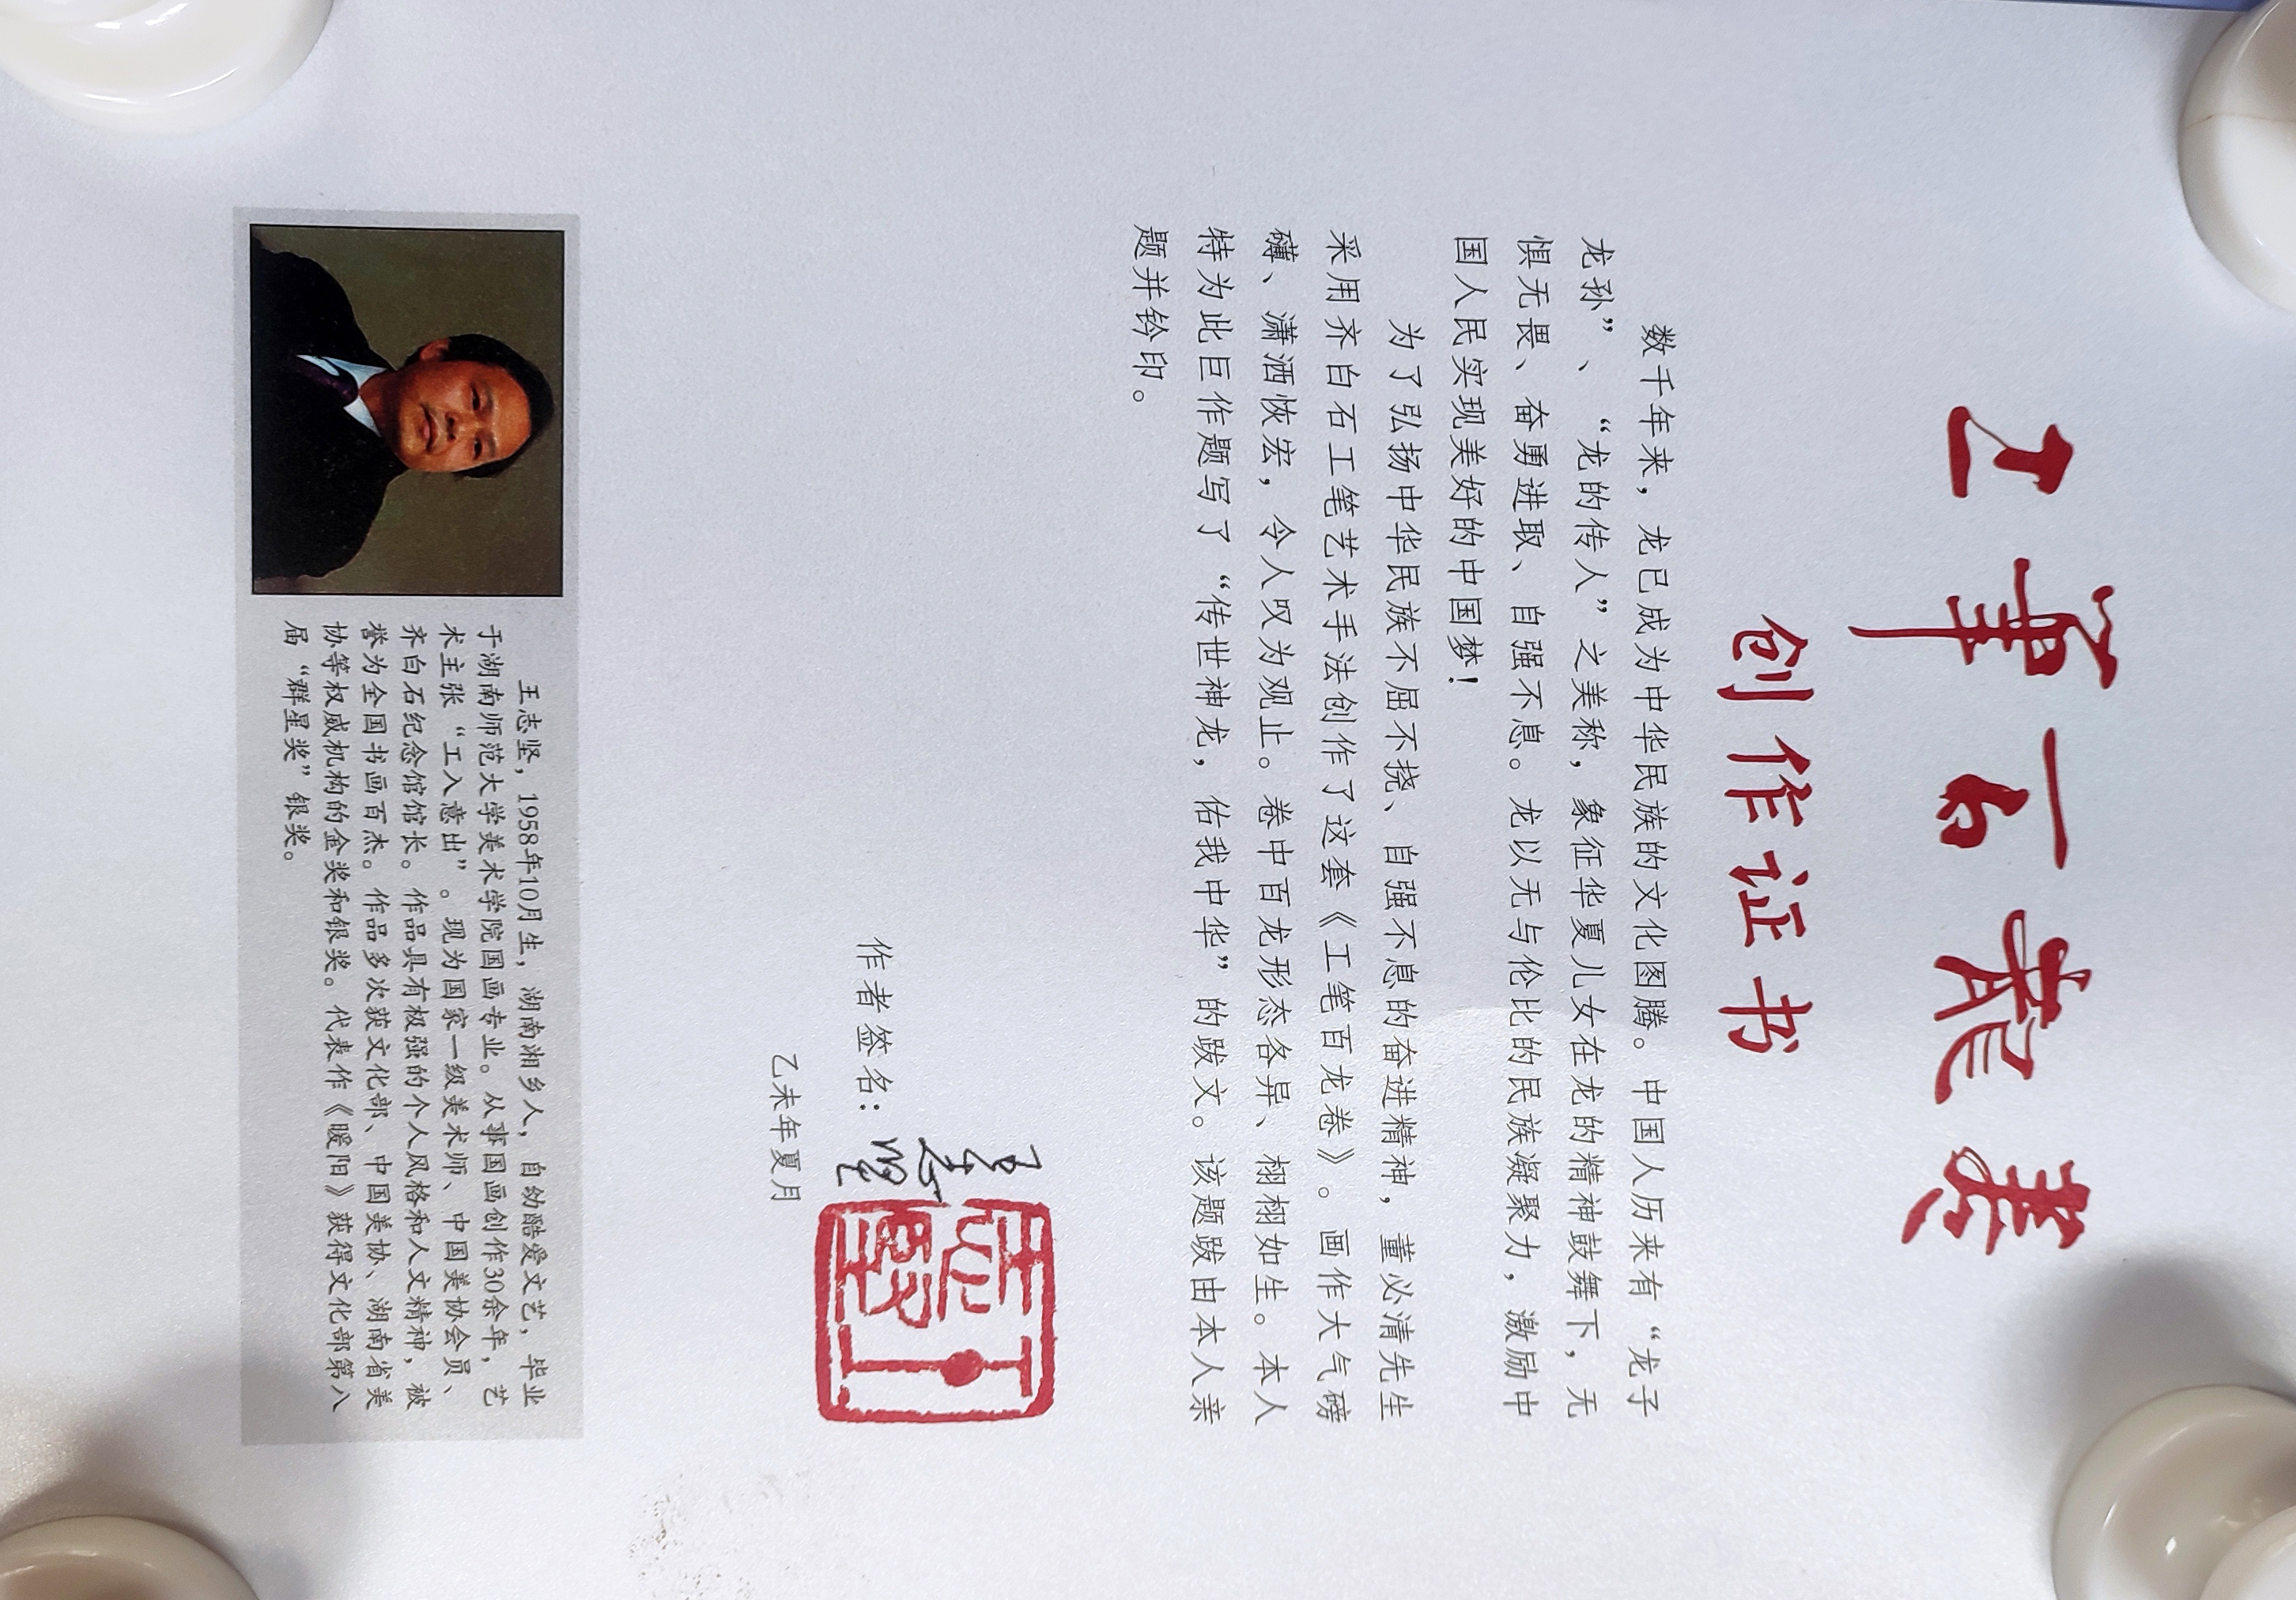 工筆百龍卷
创作证书
数千年来，龙已成为中华民族的文化图腾。中国人历来有“龙子
龙孙”、“龙的传人”之美称，象征华夏儿女在龙的精神鼓舞下，无
惧无畏、奋勇进取、自强不息。龙以无与伦比的民族凝聚力，激励中
国人民实现美好的中国梦！
为了弘扬中华民族不屈不挠、自强不息的奋进精神，董必清先生
采用齐白石工笔艺术手法创作了这套《工笔百龙卷》。画作大气磅
礴、潇洒恢宏，令人叹为观止。卷中百龙形态各异、栩栩如生。本人
特为此巨作题写了“传世神龙，佑我中华”的跋文。该题跋由本人亲
题并钤印。
作者签名：王志坚
乙未年夏月
王志坚，1958年10月生，湖南湘乡人，自幼酷爱文艺，毕业
于湖南师范大学美术学院国画专业。从事国画创作30余年，艺
术主张“工入意出”。现为国家一级美术师、中国美协会员、
齐白石纪念馆馆长。作品具有极强的个人风格和人文精神，被
誉为全国书画百杰。作品多次获文化部、中国美协、湖南省美
协等权威机构的金奖和银奖。代表作《暖阳》获得文化部第八
届“群星奖”银奖。